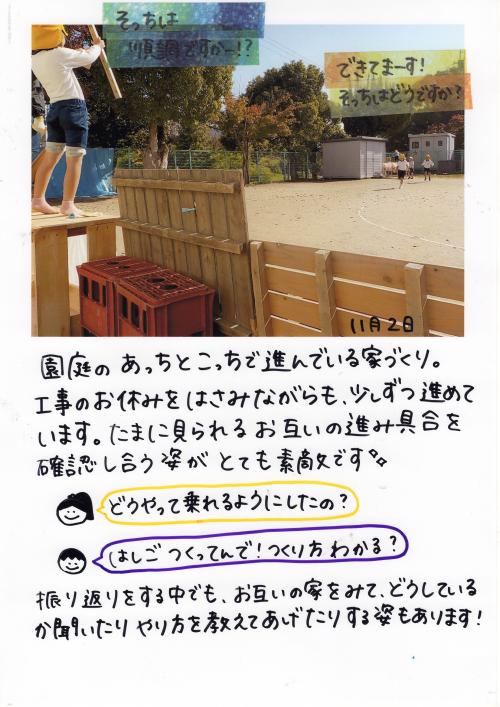 そっちは
順調ですかー!?
できてまーす!
そっちはどうですか?
11月2日
園庭の あっちとこっちで進んでいる家づくり。
工事のお休みをはさみながらも、少しずつ進めて
います。たまに見られるお互いの進み具合を
確認し合う姿が とても素敵です
どうやって乗れるようにしたの?
はしごつくってんで!つくり方わかる?
振り返りをする中でも、お互いの家をみて、どうしている
か聞いたりやり方を教えてあげたりする姿もあります!